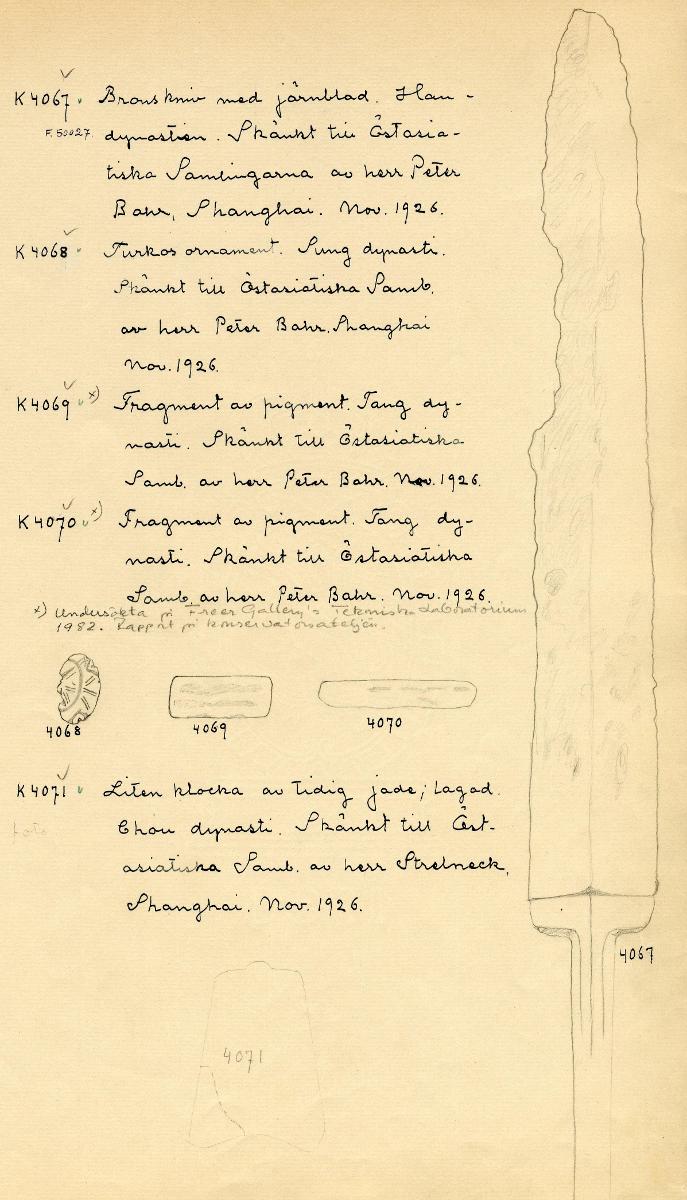 K 4067. Bronskniv med järnblad. Han-
F. 50027. dynastien. Skänkt till Östasia-
tiska Samlingarna av herr Peter
Bahr, Shanghai. Nov. 1926.
K 4068. Turkos ornament. Sung dynasti.
Skänkt till Östasiatiska Saml.
av herr Peter Bahr. Shanghai
Nov. 1926.
K 4069 x) Fragment av pigment. Tang dy-
nasti. Skänkt till Östasiatiska
Saml. av herr Peter Bahr. Nov. 1926.
K 4070 x) Fragment av pigment. Tang dy-
nasti. Skänkt till Östasiatiska
Saml. av herr Peter Bahr. Nov. 1926.
x) Undersökta på Freer Gallery's Tekniska Laboratorium
1982. Rapport på konservatorsateljén.
4068
4069
4070
K 4071. Liten klocka av tidig jade; lagad.
Foto Chou dynasti. Skänkt till Öst-
asiatiska Saml. av herr Strelneck,
Shanghai. Nov. 1926.
4067
4071